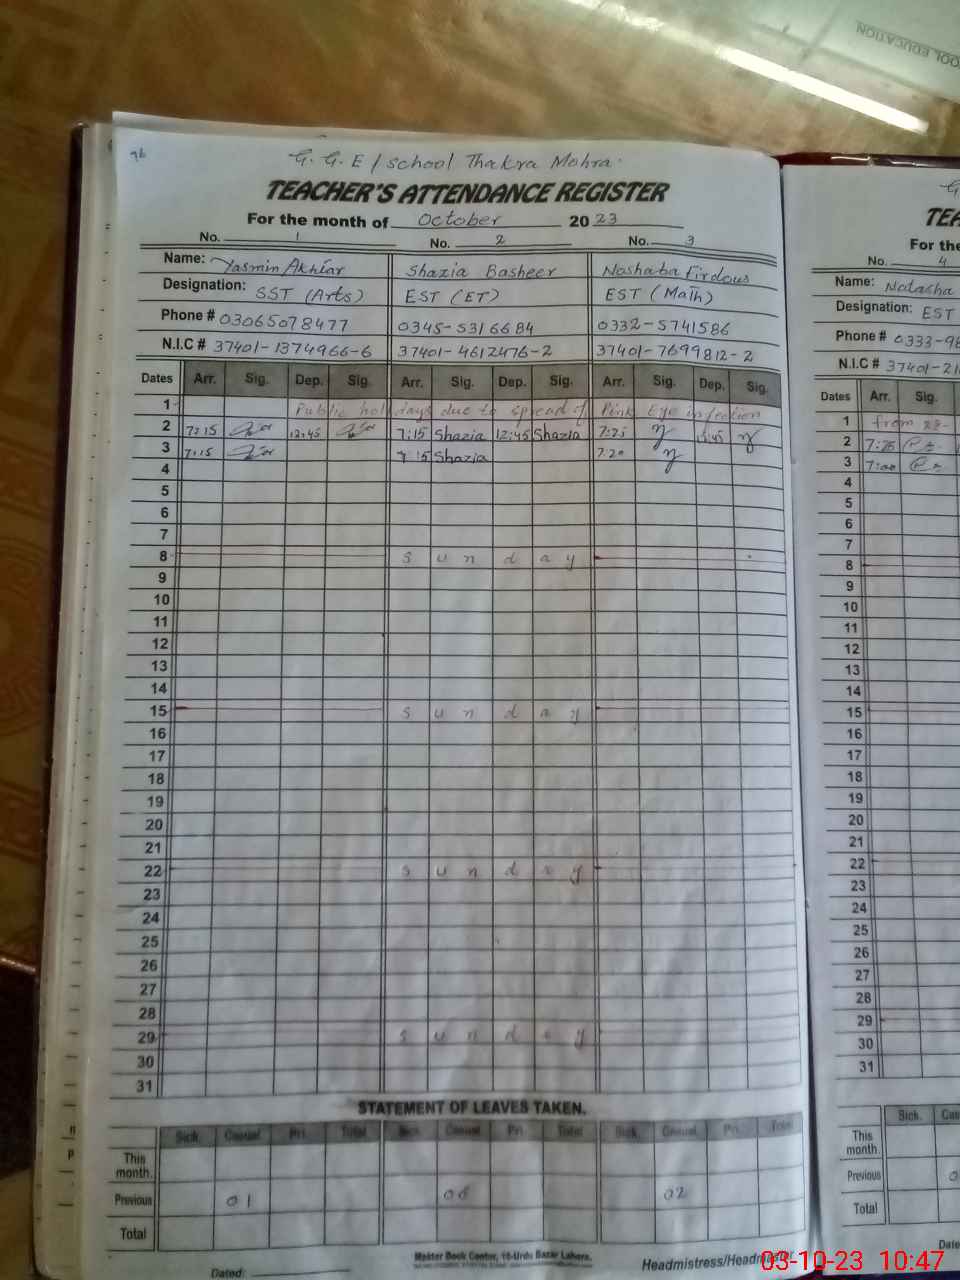 OOL EDUCATION
96
G. G. E / School Thakra Mohra.
TEACHER'S ATTENDANCE REGISTER
For the month of October 2023
No. 1 No. 2 No. 3
Name: Yasmin Akhtar Shazia Basheer Noshaba Firdous
Designation: SST (Arts) EST (ET) EST (Math)
Phone # 03065078477 0345-5316684 0332-5741586
N.I.C # 37401-1374966-6 37401-4612476-2 37401-7699812-2
Dates Arr. Sig. Dep. Sig. Arr. Sig. Dep. Sig. Arr. Sig. Dep. Sig.
1 Public holidays due to spread of Pink Eye infection
2 7:15 12:45 7:15 Shazia 12:45 Shazia 7:25
3 7:15 7:15 Shazia 7:20
4
5
6
7
8 Sunday
9
10
11
12
13
14
15 Sunday
16
17
18
19
20
21
22 Sunday
23
24
25
26
27
28
29 Sunday
30
31
STATEMENT OF LEAVES TAKEN.
Sick. Casual Pri. Total Sick. Casual Pri. Total Sick. Casual Pri. Total
This month.
Previous 01 06 02
Total
Master Book Center, 10-Urdu Bazar Lahore.
Dated: Headmistress/Headmaster
TEA
For the
No. 4
Name: Natasha
Designation: EST
Phone # 0333-98
N.I.C # 37401-21
Dates Arr. Sig.
1 from 28-
2 7:25
3 7:00
4
5
6
7
8
9
10
11
12
13
14
15
16
17
18
19
20
21
22
23
24
25
26
27
28
29
30
31
Sick. Cas
This month.
Previous 0
Total
Date
03-10-23 10:47